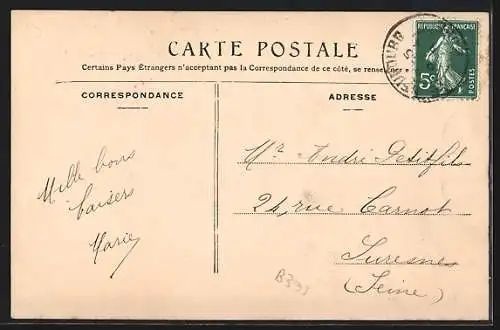 CARTE POSTALE
Certains Pays Étrangers n'acceptant pas la Correspondance de ce côté, se rense
CORRESPONDANCE
ADRESSE
REPUBLIQUE FRANÇAISE
5c
POSTES
Mille bons
baisers
Marie
Mr André Petitfils
21, rue Carnot
Suresnes
(Seine)